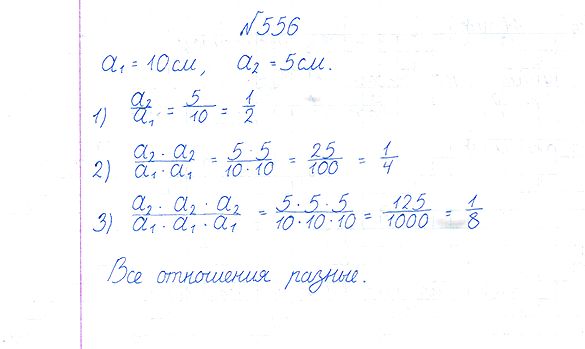 №556
a₁ = 10 см, a₂ = 5 см.
1) a₂/a₁ = 5/10 = 1/2
2) a₂ · a₂/a₁ · a₁ = 5 · 5/10 · 10 = 25/100 = 1/4
3) a₂ · a₂ · a₂/a₁ · a₁ · a₁ = 5 · 5 · 5/10 · 10 · 10 = 125/1000 = 1/8
Все отношения разные.